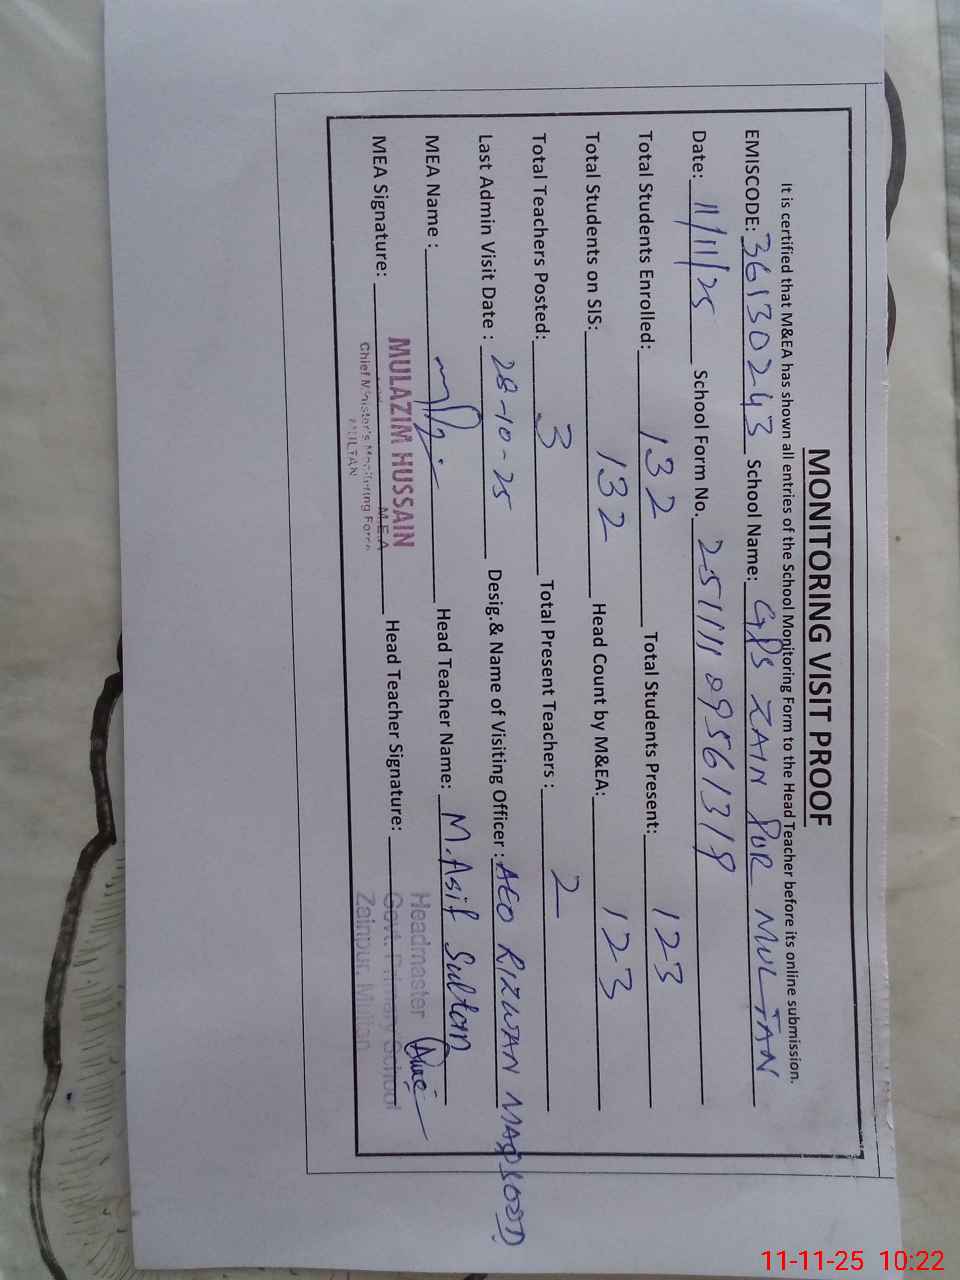 MONITORING VISIT PROOF
It is certified that M&EA has shown all entries of the School Monitoring Form to the Head Teacher before its online submission.
EMISCODE: 36130243 School Name: GPS ZAIN PUR MULTAN
Date: 11/11/25 School Form No. 251111 0956131 9
Total Students Enrolled: 132 Total Students Present: 123
Total Students on SIS: 132 Head Count by M&EA: 123
Total Teachers Posted: 3 Total Present Teachers : 2
Last Admin Visit Date : 28-10-25 Desig.& Name of Visiting Officer : AEO RIZWAN MAQSOOD
MEA Name : Head Teacher Name: M.Asif Sultan
MEA Signature: Head Teacher Signature:
MULAZIM HUSSAIN
M.E.A
Chief Minister's Monitoring Force
MULTAN
Headmaster
Govt. Primary School
Zainpur, Multan
11-11-25 10:22